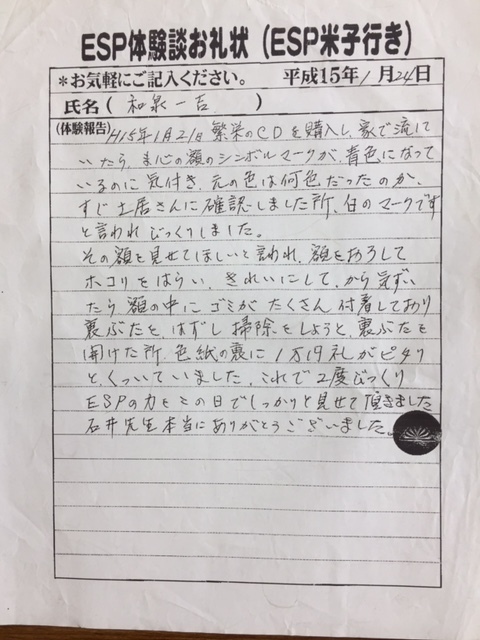 ESP体験談お礼状（ESP米子行き）
＊お気軽にご記入ください。 平成15年1月24日
氏名（ 和泉一吉 ）
(体験報告) H15年1月21日 繁栄のCDを購入し、家で流して
いたら、良心の額のシンボルマークが、青色になって
いるのに気付き、元の色は何色だったのか、
すぐ土居さんに確認しました所、白のマークです
と言われびっくりしました。
その額を見せてほしいと言われ、額をおろして
ホコリをはらい、きれいにして、から気ずい
たら額の中にゴミがたくさん付着しており
裏ぶたを、はずし掃除をしようと、裏ぶたを
開けた所、色紙の裏に1万円札がピタリ
と、くっついていました、これで2度びっくり
ESPの力をこの目でしっかりと見せて頂きました
石井先生本当にありがとうございました。